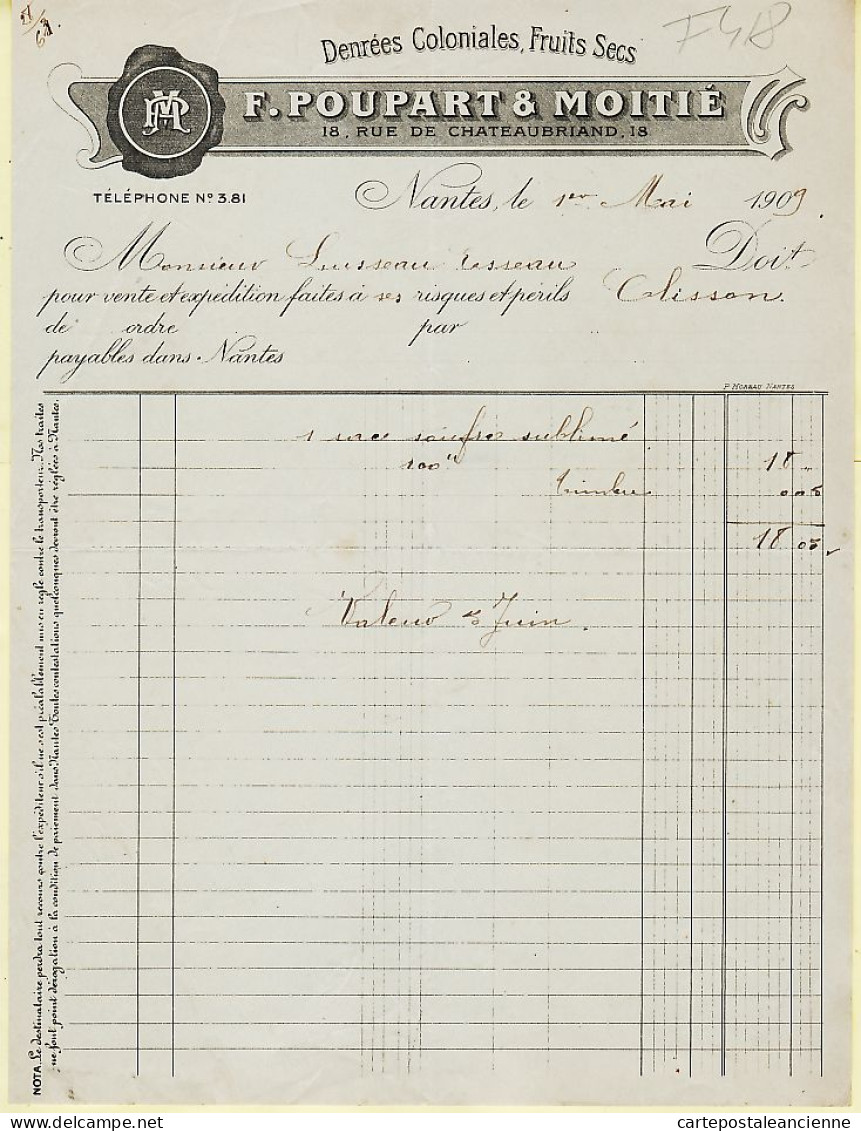 F418
Denrées Coloniales, Fruits Secs
F. POUPART & MOITIÉ
18, RUE DE CHATEAUBRIAND, 18
TÉLÉPHONE Nº 3.81
Nantes, le 1er Mai 1909
Monsieur Lusseau Doit
pour vente et expédition faites à ses risques et périls Clisson
de ordre par
payables dans Nantes
P. MOREAU NANTES
1 sac soufre sublimé
100k 18
timbre 005
18 05
Valeur Juin.
NOTA. Le destinataire perdra tout recours contre l'expéditeur s'il ne s'est préalablement mis en règle contre le transporteur. Nos traites
ne font point dérogation à la condition de paiement dans Nantes. Toutes contestations quelconques devront être réglées à Nantes.
cartepostaleancienne